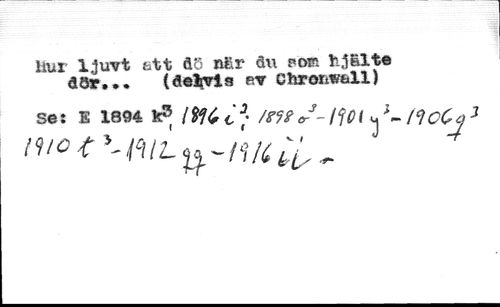 Hur ljuvt att dö när du som hjälte
dör... (delvis av Chronwall)
Se: E 1894 k³, 1896 i³, 1898 o³ - 1901 y³ - 1906 q³
1910 t³ - 1912 qq - 1916 ii -